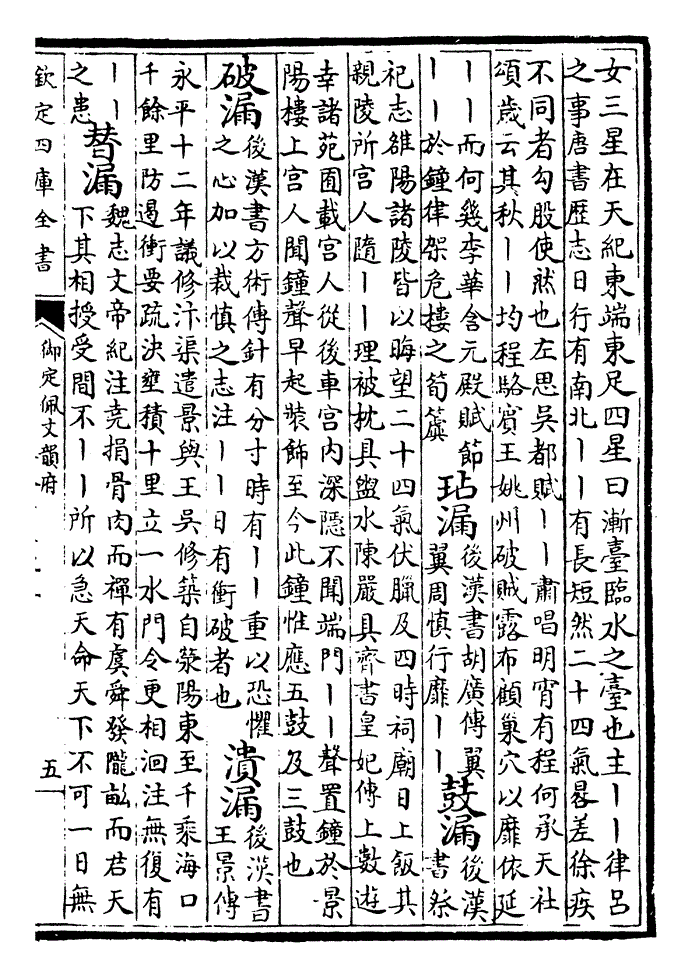 女三星在天紀東端東足四星曰漸臺臨水之臺也主丨丨律呂
之事唐書歴志日行有南北丨丨有長短然二十四氣晷差徐疾
不同者勾股使然也左思吳都賦丨丨肅唱明宵有程何承天社
頌歲云其秋丨丨均程駱賓王姚州破賊露布顧巢穴以靡依延
丨丨而何幾李華含元殿賦節
丨丨於鐘律架危樓之筍簴
玷漏
後漢書胡廣傳翼
翼周慎行靡丨丨
鼓漏
後漢
書祭
祀志雒陽諸陵皆以晦望二十四氣伏臘及四時祠廟日上飯其
親陵所宮人隨丨丨理被枕具盥水陳嚴具齊書皇妃傳上數遊
幸諸苑囿載宮人從後車宮内深隱不聞端門丨丨聲置鐘於景
陽樓上宮人聞鐘聲早起裝飾至今此鐘惟應五鼓及三鼓也
破漏
後漢書方術傳針有分寸時有丨丨重以恐懼
之心加以裁慎之志注丨丨日有衝破者也
潰漏
後漢書
王景傳
永平十二年議修汴渠遣景與王吳修築自滎陽東至千乘海口
千餘里防遏衝要疏決壅積十里立一水門令更相洄注無復有
丨丨
之患
替漏
魏志文帝紀注堯捐骨肉而禪有虞舜發隴畝而君天
下其相授受間不丨丨所以急天命天下不可一日無
欽定四庫全書
御定佩文韻府
五